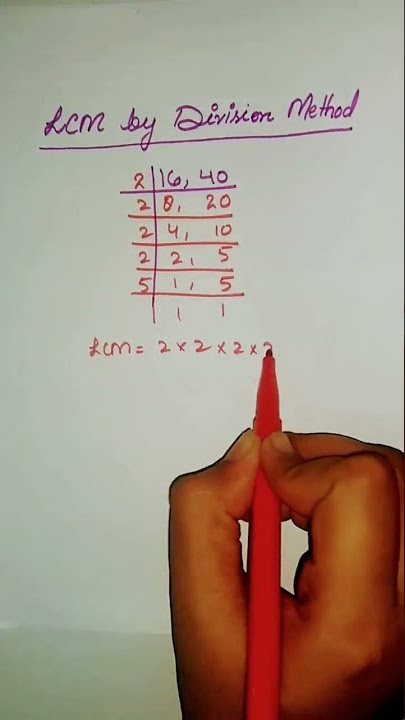 LCM by Division Method
2 | 16, 40
2 | 8, 20
2 | 4, 10
2 | 2, 5
5 | 1, 5
| 1 1
LCM = 2 × 2 × 2 × 2